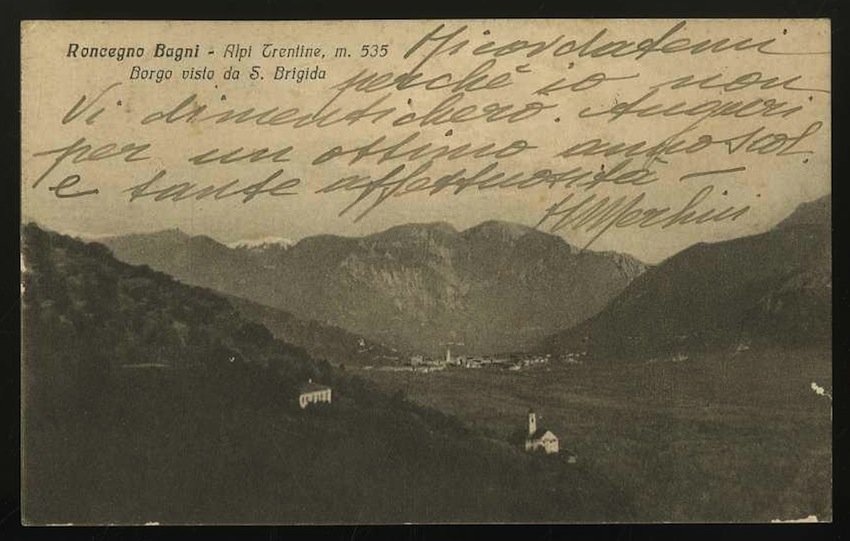 Roncegno Bagni - Alpi Trentine, m. 535
Borgo visto da S. Brigida
Ricordatemi
perchè io non
Vi dimenticherò. Auguri
per un ottimo anno scol.
e tante affettuosità —